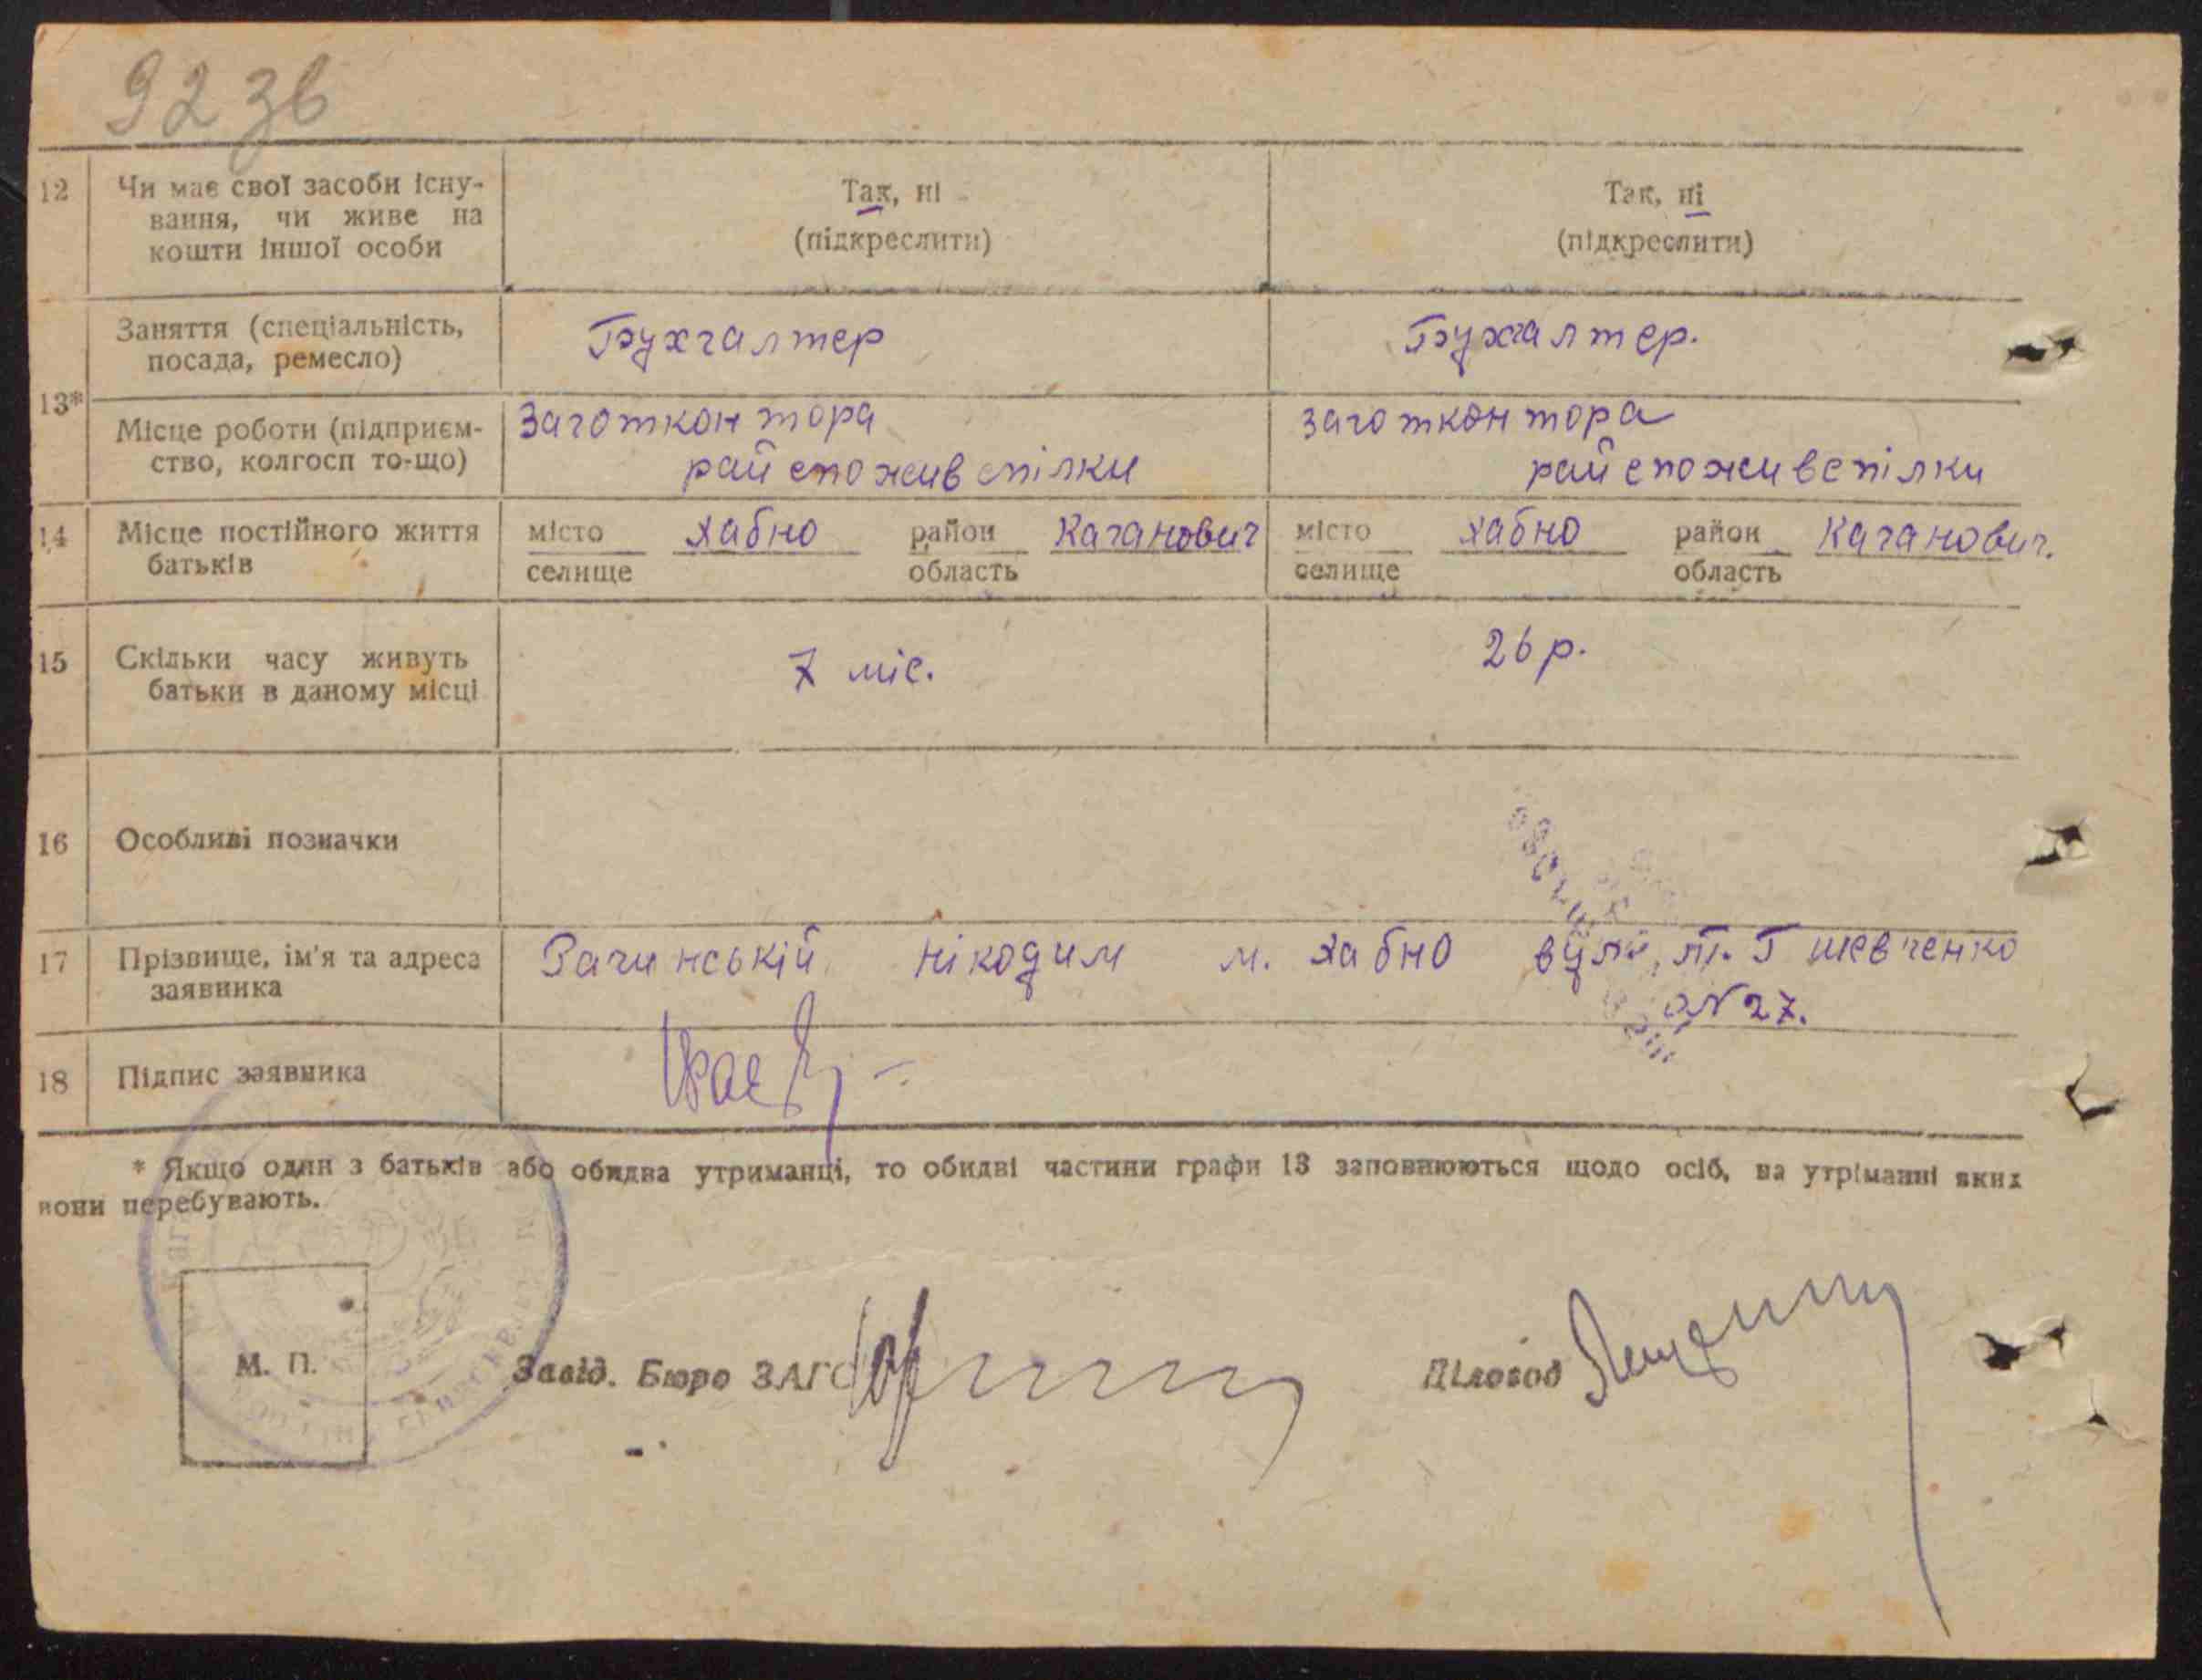 92 зв
12 Чи має свої засоби існу- Так, ні Так, ні
вання, чи живе на
кошти іншої особи (підкреслити) (підкреслити)
Заняття (спеціальність, Бухгалтер Бухгалтер.
посада, ремесло)
13*
Місце роботи (підприєм- Заготконтора заготконтора
ство, колгосп то-що) райспоживспілки райспоживспілки
14 Місце постійного життя місто Хабно район Каганович місто Хабно район Каганович.
батьків селище область селище область
15 Скільки часу живуть 7 міс. 26 р.
батьки в даному місці
16 Особливі позначки
17 Прізвище, ім'я та адреса нікодим м. Хабно вул. Т. Г шевченко
заявника №27.
18 Підпис заявника
* Якщо один з батьків або обидва утриманці, то обидві частини графи 13 заповнюються щодо осіб, на утріманні яких
вони перебувають.
М. П. Завід. Бюро ЗАГС Діловод